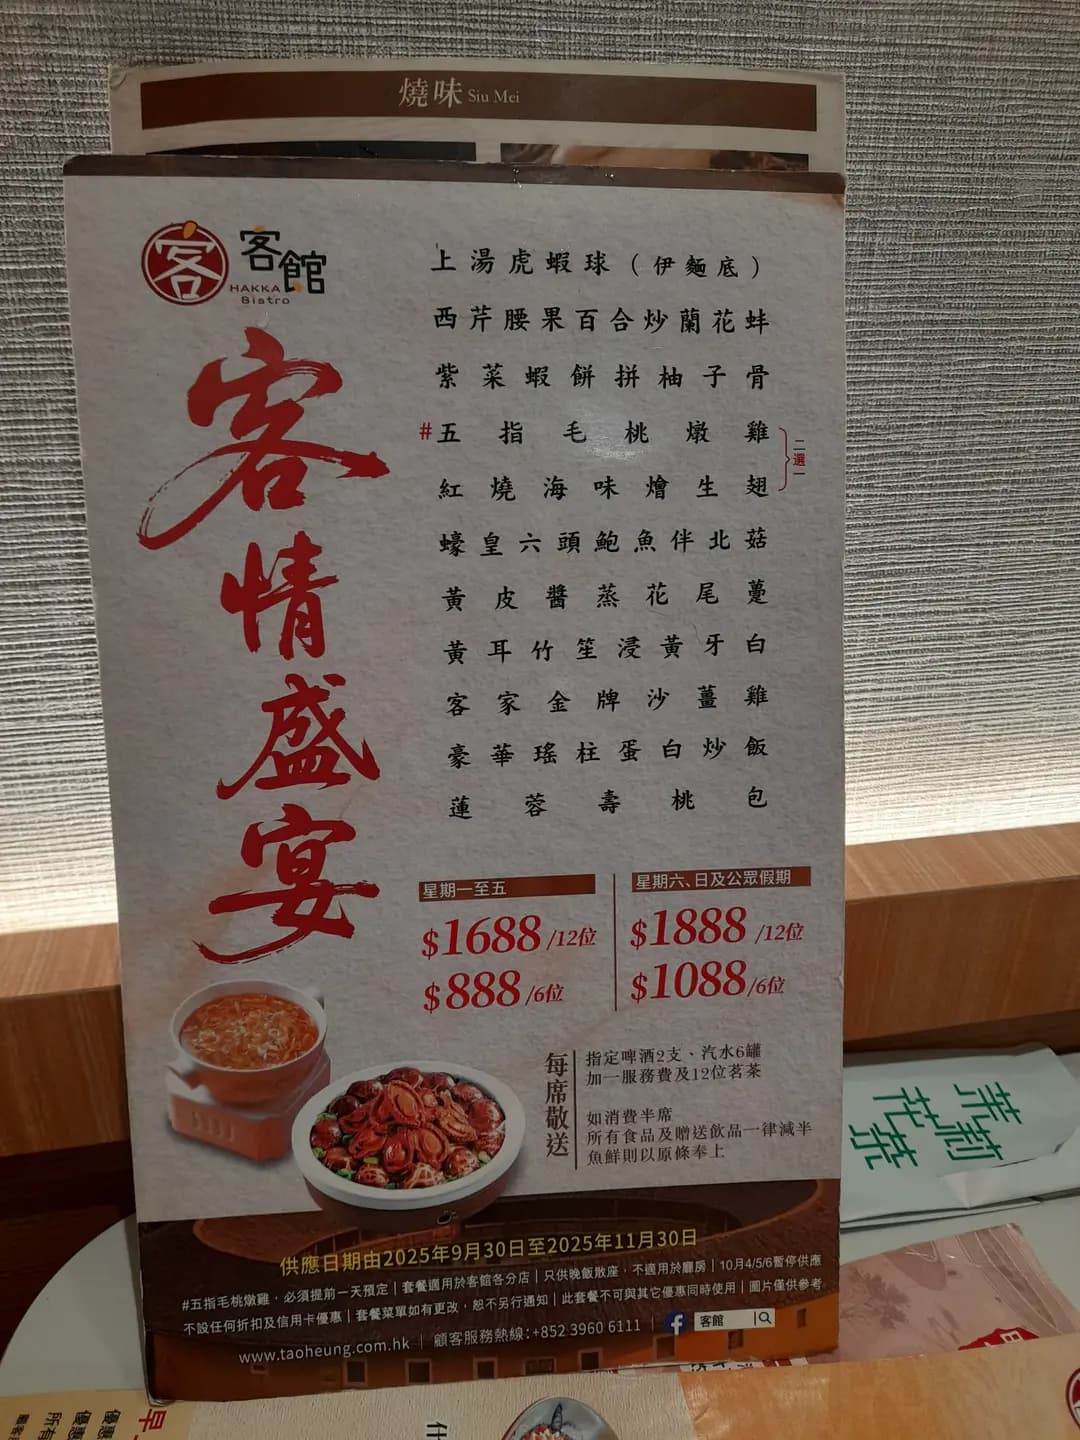 燒味 Siu Mei
客 客館
HAKKA
Bistro
客情盛宴
上湯虎蝦球（伊麵底）
西芹腰果百合炒蘭花蚌
紫菜蝦餅拼柚子骨
#五指毛桃燉雞
紅燒海味燴生翅
二選一
蠔皇六頭鮑魚伴北菇
黃皮醬蒸花尾躉
黃耳竹笙浸黃牙白
客家金牌沙薑雞
豪華瑤柱蛋白炒飯
蓮蓉壽桃包
星期一至五
$1688/12位
$888/6位
星期六、日及公眾假期
$1888/12位
$1088/6位
每席敬送
指定啤酒2支、汽水6罐
加一服務費及12位茗茶
如消費半席
所有食品及贈送飲品一律減半
魚鮮則以原條奉上
供應日期由2025年9月30日至2025年11月30日
#五指毛桃燉雞，必須提前一天預定 | 套餐適用於客館各分店 | 只供晚飯散座，不適用於廳房 | 10月4/5/6暫停供應
不設任何折扣及信用卡優惠 | 套餐菜單如有更改，恕不另行通知 | 此套餐不可與其它優惠同時使用 | 圖片僅供參考
www.taoheung.com.hk | 顧客服務熱線：+852 3960 6111 | f 客館
茉莉
花茶
早
優惠
優惠
所有